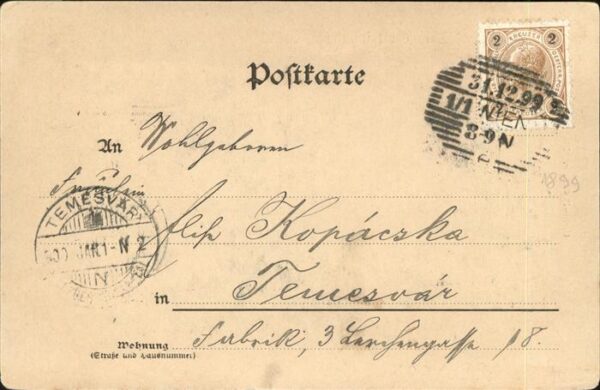 2 KREUZER 2
Postkarte
31.12.99
1/1 WIEN
8-9N
An Wohlgeboren
1899
Fräulein
TEMESVÁR
900 JAN 1-N 2
N
Kopácska
in Temesvár
Wohnung
(Straße und Hausnummer)
Fabrik, 3 Lerchengasse 18.